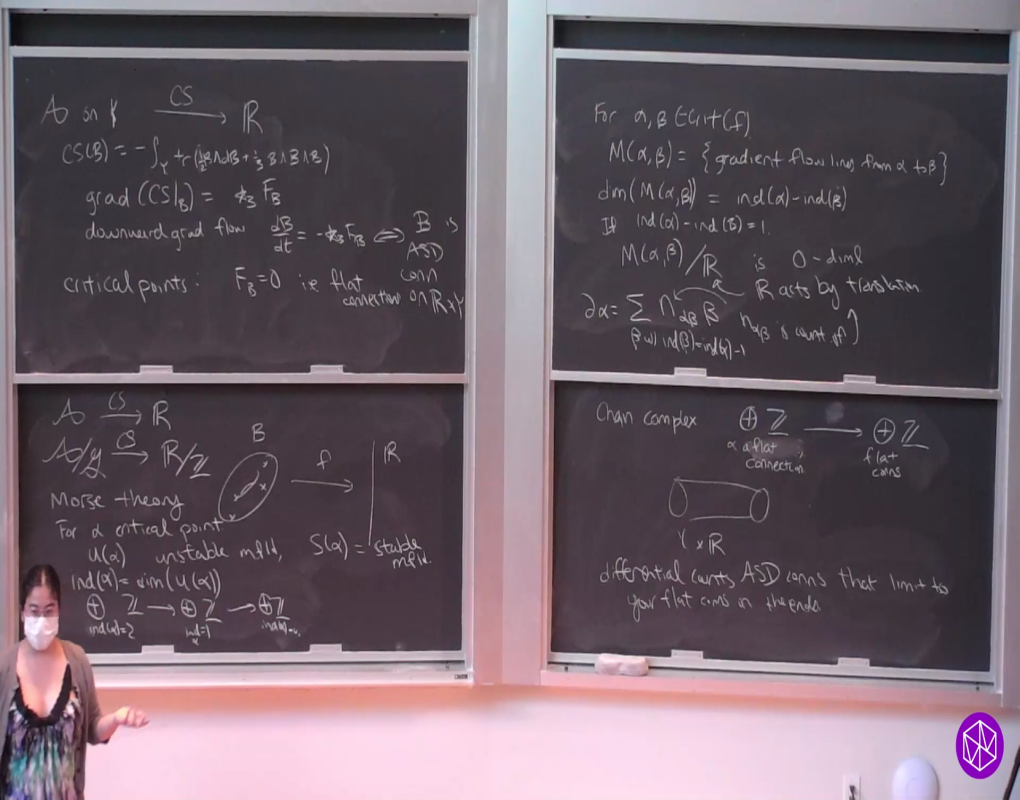 A on Y CS→ ℝ
CS(B) = -∫_Y tr(½B∧dB + ⅓ B∧B∧B)
grad(CS|_B) = *₃F_B
downward grad flow dB/dt = -*₃F_B ⟺ B is ASD conn on ℝ×Y
critical points: F_B=0 i.e. flat connection
A CS→ ℝ
A/G CS→ ℝ/ℤ
B f→ ℝ
Morse theory
For α critical point
U(α) unstable mfld, S(α) = stable mfld.
ind(α) = dim(U(α))
⊕ ℤ → ⊕ ℤ → ⊕ ℤ
ind(α)=2 ind=1
For α, β ∈ Crit(f)
M(α,β) = {gradient flow lines from α to β}
dim(M(α,β)) = ind(α)-ind(β)
If ind(α)-ind(β)=1.
M(α,β)/ℝ is 0-diml
ℝ acts by translation
∂α = Σ n_αβ β n_αβ is count of
β w/ ind(β)=ind(α)-1
Chain complex ⊕ ℤ → ⊕ ℤ
α a flat connection flat conns
Y × ℝ
differential counts ASD conns that limit to
your flat conns on the ends